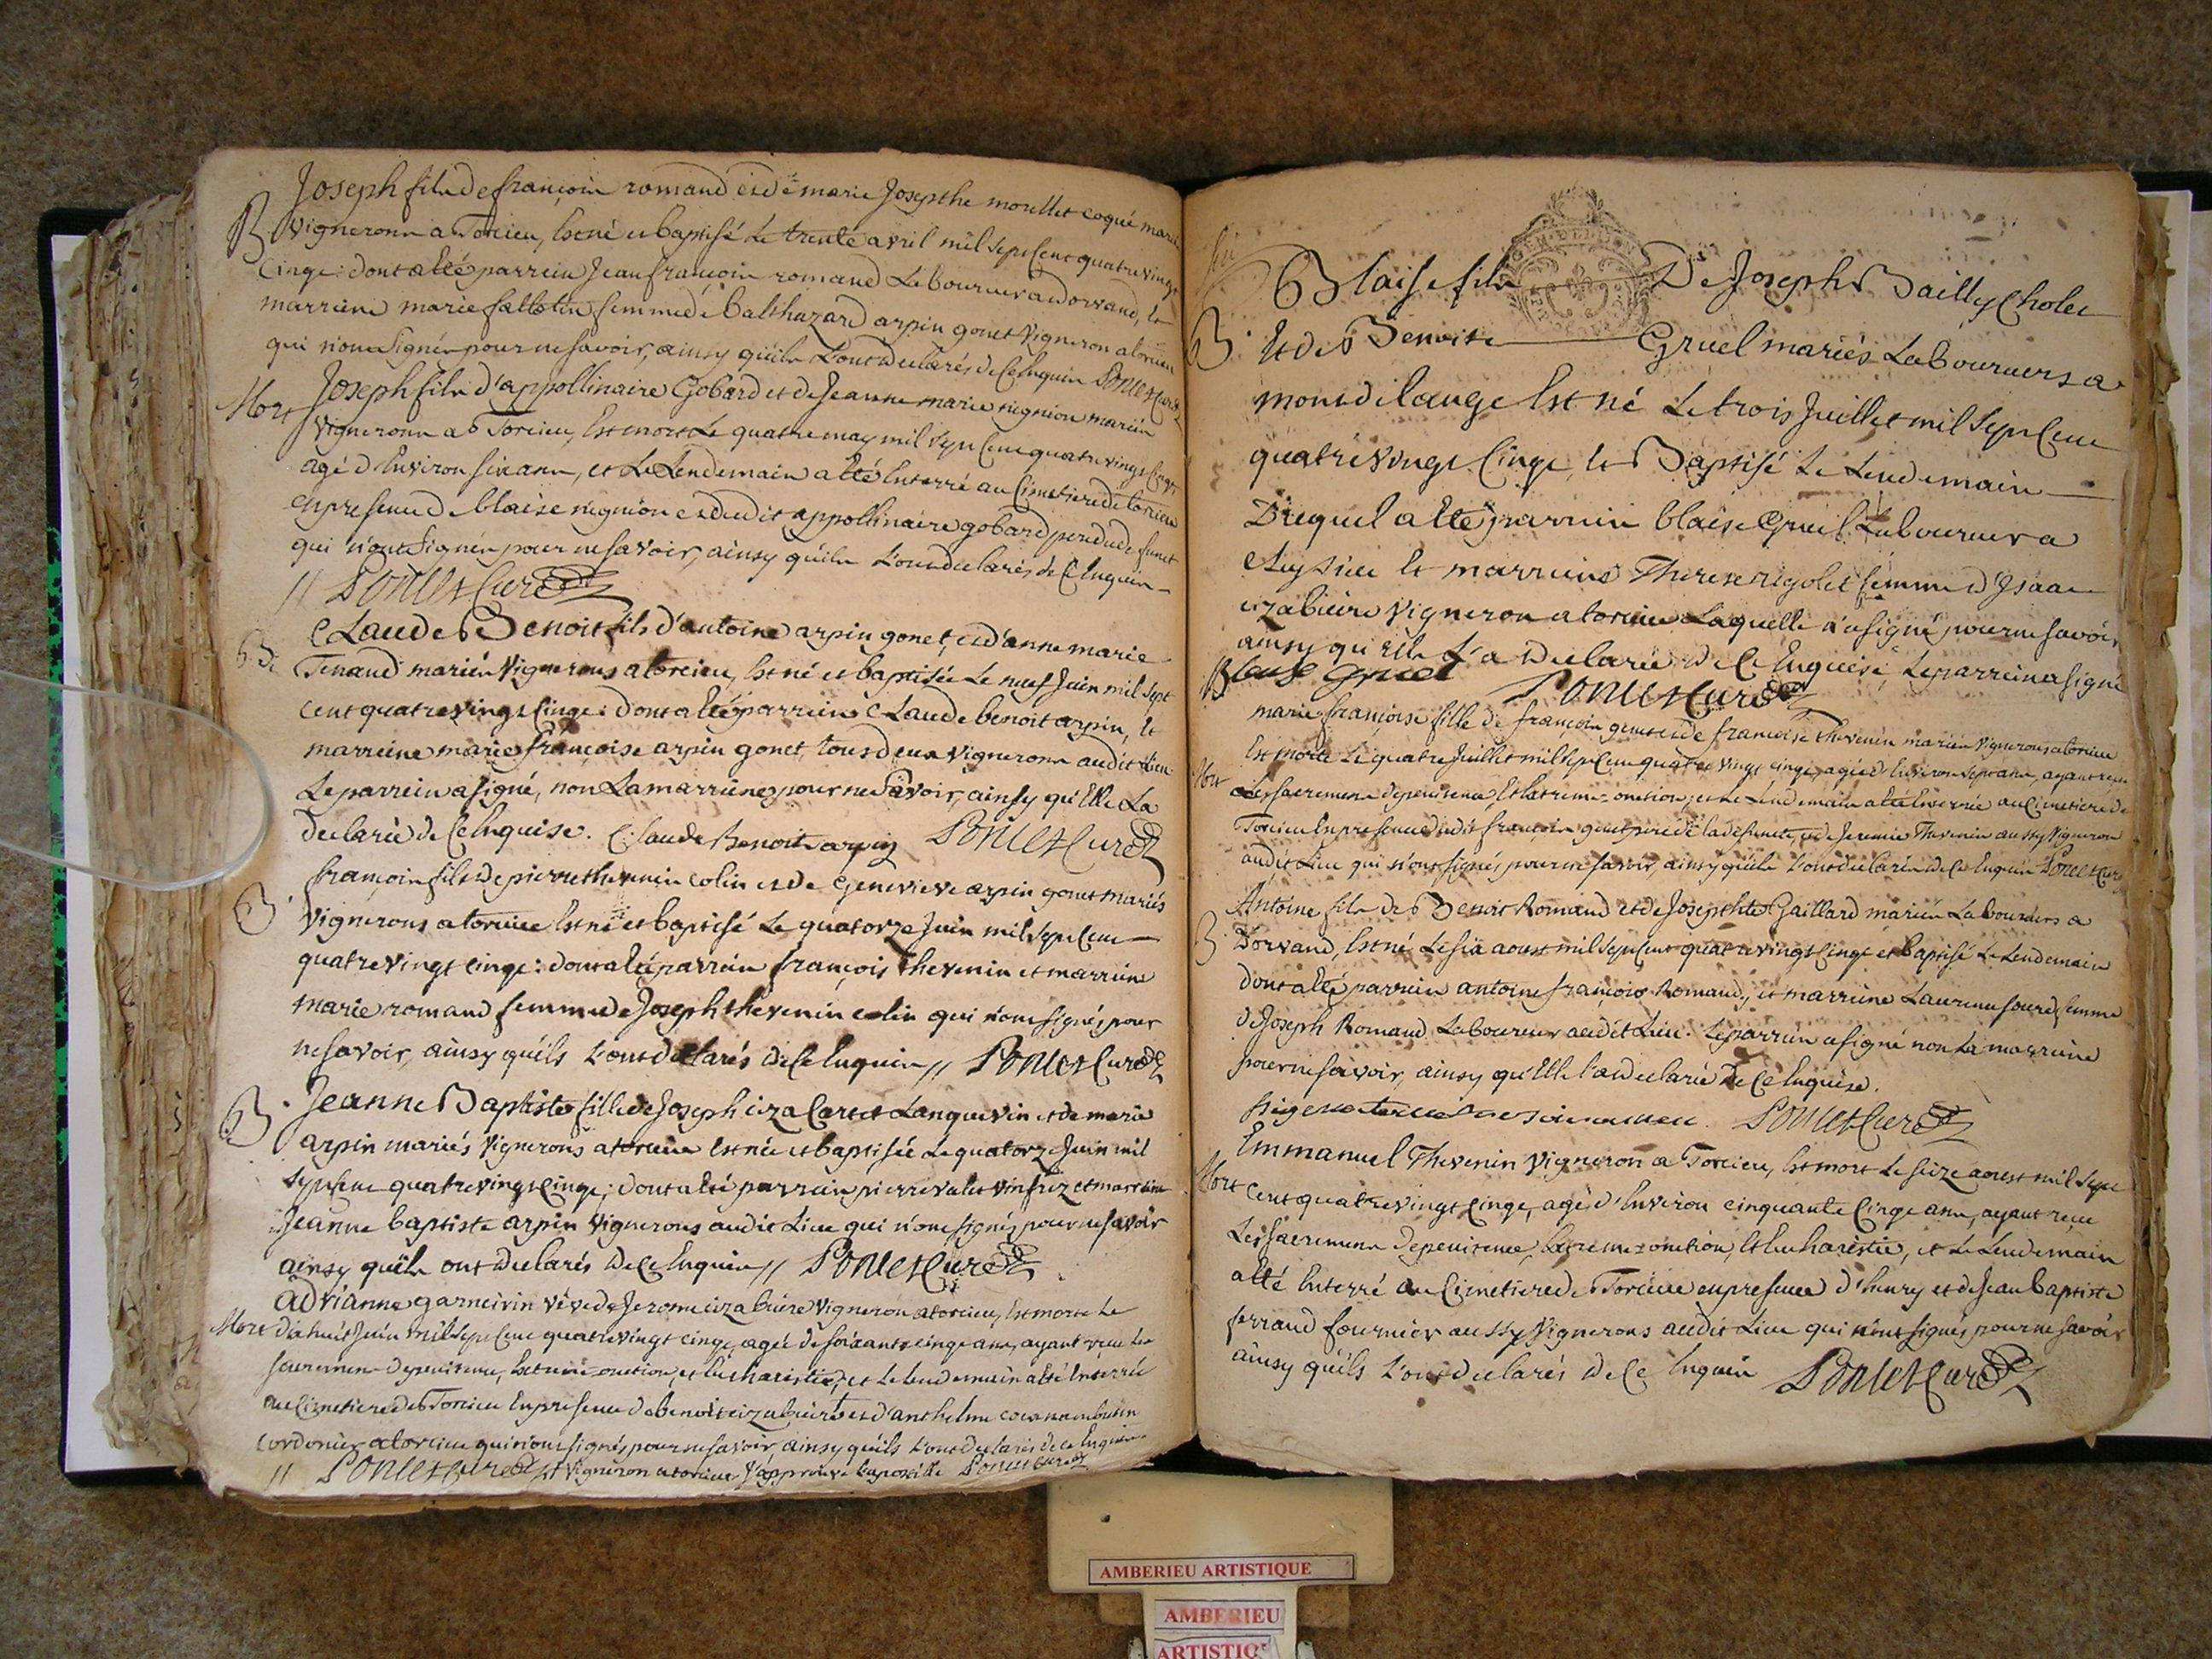 Joseph fils de françois romand et de marie Josepthe morellet coqué mariés
B vignerons a Torcieu, Est né et baptisé Le trente avril mil sept Cent quatre vingt
Cinqe: dont a Eté parrein Jean françois romand Laboureur a dorvand, Et
marreine marie fallotin femme de balthazard arpin gonet Vigneron a torcieu
qui n'ont Signés pour ne savoir, ainsy qu'ils L'ont declarés de Ce Enquis Poncet Curé
Mort Joseph fils d'appollinaire Gobard et de Jeanne marie mignion mariés
Vignerons a Torcieu, Est mort Le quatre may mil Sept Cent quatre vingt Cinqe
agé d'Environ six ans, et Le Lendemain a Eté Enterré au Cimetiere de torcieu
En presence de blaise mignion et dudit appollinaire gobard pere du defunct
qui n'ont Signés pour ne savoir, ainsy qu'ils L'ont declarés de Ce Enquis
// Poncet Curé
B. Claude Benoit fils d'antoine arpin gonet, et d'anne marie
Tenand mariés Vignerons a torcieu, Est né et baptisé Le neuf Juin mil Sept
Cent quatre vingt Cinqe: dont a Eté parrein Claude benoit arpin, Et
marreine marie Françoise arpin gonet, tous deux Vignerons audit Lieu
Le parrein a signé, non La marreine pour ne Savoir, ainsy qu'Elle La
declarée de Ce Enquise. Claude Benoit arpin Poncet Curé
françois fils de pierre thevenin colin et de Genevieve arpin gonet mariés
B Vignerons a torcieu Est né et baptisé Le quatorze Juin mil Sept Cent
quatre vingt cinqe: dont a Eté parrein françois thevenin et marreine
marie romand femme de Joseph thevenin colin qui n'ont signés pour
ne savoir, ainsy qu'ils L'ont declarés de Ce Enquis // Poncet Curé
B. Jeanne Baptiste fille de Joseph Languevin et de marie
arpin mariés Vignerons a torcieu Est née et baptisée Le quatorze Juin mil
Sept Cent quatre vingt Cinqe; dont a Eté parrein pierre et marreine
Jeanne baptiste arpin Vignerons audit Lieu qui n'ont signés pour ne savoir
ainsy qu'ils ont declarés de Ce Enquis // Poncet Curé
adrianne garneirin véve de Jerome izabiere Vigneron a torcieu, Est morte Le
Mort dix huit Juin mil Sept Cent quatre vingt cinqe, agée de soixante cinqe ans, ayant recue Les
sacremens de penitence, Extreme-onction, et Eucharistie, et Le lendemain a Eté Enterrée
au Cimetiere de Torcieu En presence de benoit izabiere et d'anthelme
cordonier a torcieu qui n'ont signés pour ne savoir, ainsy qu'ils L'ont declarés de Ce Enquis
// Poncet Curé Vigneron a torcieu J'approuve L'apostille Poncet Curé
Blaise fils De Joseph Bailly Cholet
B. Et de Benoite Gruel mariés Laboureurs a
mont de lange Est né Le trois Juillet mil Sept Cent
quatre Vingt Cinqe, Et Baptisé Le Lendemain
Duquel a Eté parrain blaise Gruel Laboureur a
Et marreine Therese rigolet femme d'Isaac
izabiere Vigneron a torcieu Laquelle n'a signé pour ne savoir,
ainsy qu'Elle L'a declarée de Ce Enquise, Le parrein a signé
Blaise Gruel Poncet Curé
marie françoise fille de françois genet et de françoise Thevenin mariés Vignerons a torcieu
Est morte Le quatre Juillet mil Sept Cent quatre vingt cinqe, agée d'Environ Sept ans, ayant recue
Mort Les sacremens de penitence, Et Extreme-onction; et Le Lendemain a Eté Enterrée au Cimetiere de
Torcieu En presence dudit françois genet pere de la defuncte, et de Jeremie Thevenin aussy Vigneron
audit Lieu qui n'ont signés pour ne savoir, ainsy qu'ils L'ont declarés de Ce Enquis Poncet Curé
Antoine fils de Benoit Romand et de Josepthe Gaillard mariés Laboureurs a
B. Dorvand, Est né Le six aoust mil Sept Cent quatre vingt Cinqe et baptisé Le Lendemain
dont a Eté parrein antoine françois Romand, et marreine Laurence femme
de Joseph Romand Laboureur audit Lieu: Le parrein a signé non La marreine
pour ne savoir, ainsy qu'Elle l'a declarée de Ce Enquise.
Poncet Curé
Emmanuel Thevenin Vigneron a Torcieu, Est mort Le seize aoust mil Sept
Mort Cent quatre vingt Cinqe, agé d'Environ cinquante Cinqe ans, ayant recue
Les sacremens de penitence, Extreme-onction, Et Eucharistie, et Le Lendemain
a Eté Enterré au Cimetiere de Torcieu en presence d'henry et de Jean baptiste
ferrand fournier aussy Vignerons audit Lieu qui n'ont signés pour ne savoir
ainsy qu'ils L'ont declarés de Ce Enquis Poncet Curé
AMBERIEU ARTISTIQUE
AMBERIEU
ARTISTIQ